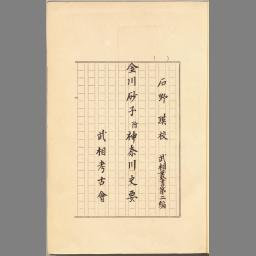 石野瑛校 武相叢書第二編
金川砂子 附 神奈川史要
武相考古會